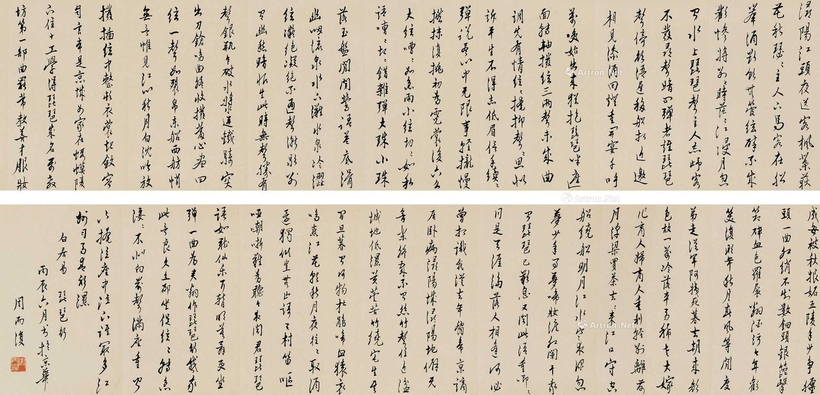 潯陽江頭夜送客楓葉荻
花秋瑟瑟主人下馬客在船
舉酒欲飲無管絃醉不成
歡慘將別別時茫茫江浸月忽
聞水上琵琶聲主人忘歸客
不發尋聲暗問彈者誰琵琶
聲停欲語遲移船相近邀
相見添酒回燈重開宴千呼
萬喚始出來猶抱琵琶半遮
面轉軸撥絃三兩聲未成曲
調先有情絃絃掩抑聲聲思似
訴平生不得志低眉信手續續
彈說盡心中無限事輕攏慢
撚抹復挑初為霓裳後六幺
大絃嘈嘈如急雨小絃切切如私
語嘈嘈切切錯雜彈大珠小珠
落玉盤間關鶯語花底滑
幽咽流泉水下灘水泉冷澀
絃凝絕凝絕不通聲漸歇別
有幽愁暗恨生此時無聲勝有
聲銀瓶乍破水漿迸鐵騎突
出刀鎗鳴曲終收撥當心畫四
絃一聲如裂帛東船西舫悄
無言惟見江心秋月白沈吟放
撥插絃中整頓衣裳起斂容
自言本是京城女家在蝦蟆陵
下住十三學得琵琶成名屬教
坊第一部曲罷常教善才服妝
成每被秋娘妒五陵年少爭纏
頭一曲紅綃不知數鈿頭銀篦擊
節碎血色羅裙翻酒污今年歡
笑復明年秋月春風等閒度
弟走從軍阿姨死暮去朝來顏
色故門前冷落車馬稀老大嫁
作商人婦商人重利輕別離前
月浮梁買茶去去來江口守空
船繞船明月江水寒夜深忽
夢少年事夢啼妝淚紅闌干我
聞琵琶已嘆息又聞此語重唧唧
同是天涯淪落人相逢何必
曾相識我從去年辭帝京謫
居臥病潯陽城潯陽地僻無
音樂終歲不聞絲竹聲住近湓
城地低濕黃蘆苦竹繞宅生其
間旦暮聞何物杜鵑啼血猿哀
鳴春江花朝秋月夜往往取酒
還獨傾豈無山歌與村笛嘔
啞嘲哳難為聽今夜聞君琵琶
語如聽仙樂耳暫明莫辭更坐
彈一曲為君翻作琵琶行感我
此言良久立卻坐促絃絃轉急
淒淒不似向前聲滿座重聞
皆掩泣座中泣下誰最多江
州司馬青衫濕
白居易 琵琶行
丙辰六月書於京華
周而復